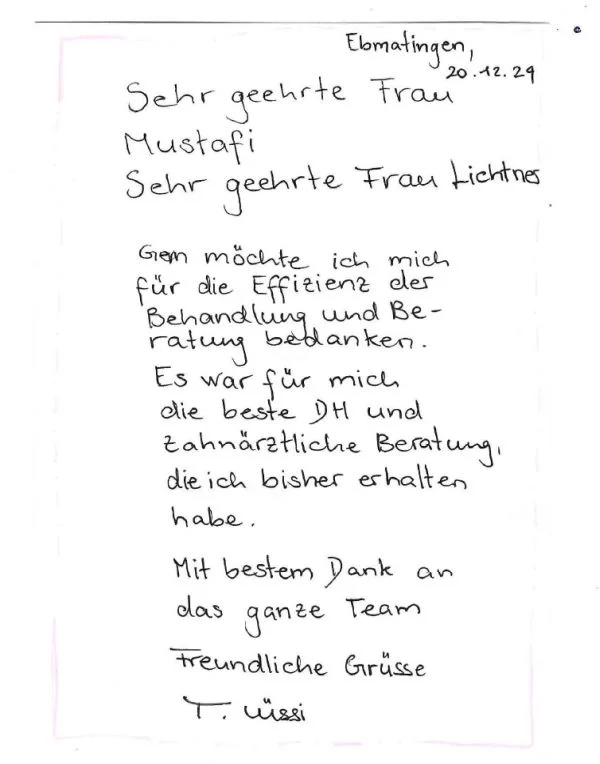 Ebmatingen,
20.12.24
Sehr geehrte Frau
Mustafi
Sehr geehrte Frau Lichtner
Gern möchte ich mich
für die Effizienz der
Behandlung und Be-
ratung bedanken.
Es war für mich
die beste DH und
zahnärztliche Beratung,
die ich bisher erhalten
habe.
Mit bestem Dank an
das ganze Team
Freundliche Grüsse
T. Lüssi